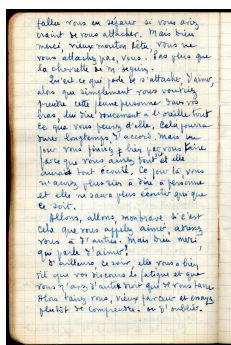 fallu vous en séparer si vous aviez
craint de vous attacher. Mais Dieu
merci, vieux mouton bête, vous ne
vous attachez pas, vous. Pas plus que
la chevrette de M. Seguin.
Qu'est ce qui parle de s'attacher, d'aimer,
alors que simplement vous voudriez
prendre cette jeune personne dans vos
bras, lui dire doucement à l'oreille tout
ce que vous pensez d'elle. Cela pourra
durer longtemps d'accord, mais un
jour vous finirez bien par vous taire
parce que vous aurez tout dit et elle
aura tout écouté. Ce jour là vous
n'aurez plus rien à dire à personne
et elle ne saura plus écouter qui que
ce soit.
Allons, allons mon brave si c'est
cela que vous appelez aimer, adressez
vous à d'autres. Mais Dieu merci,
qui parle d'aimer?
D'ailleurs ce soir, elle vous a bien
dit que vos discours la fatigue et que
vous n'avez d'autre droit que de vous taire
Alors taisez vous, vieux farceur et essayez
plutôt de comprendre. ou d'oublier.